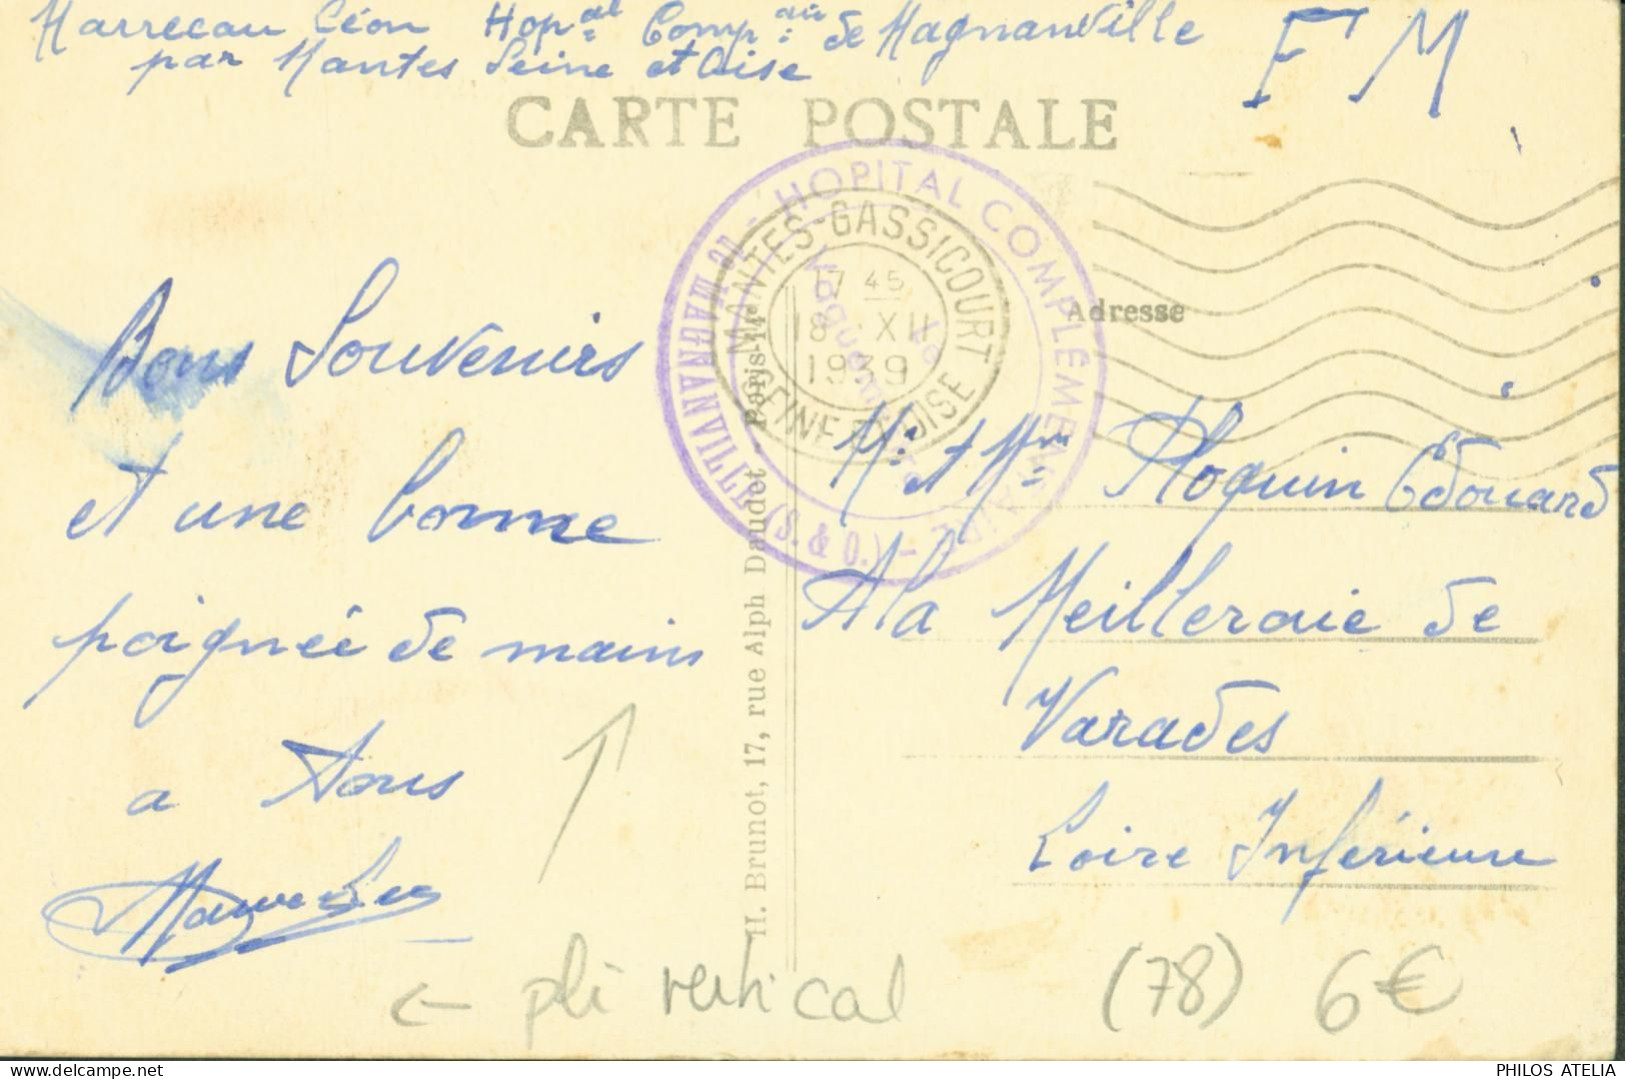 Marrecau Léon Hopal Compaire de Magnanville
par Mantes Seine et Oise
F M
CARTE POSTALE
HOPITAL COMPLÉMENTAIRE - de MAGNANVILLE (S. & O.)
MANTES-GASSICOURT
17 45
18 XII
1939
SEINE ET OISE
Adresse
Bons Souvenirs
et une bonne
poignée de mains
a tous
Mr et Mme Ploquin Edouard
A la Meilleraie de
Varades
Loire Inférieure
H. Brunot, 17, rue Alph Daudet - Paris-14e
← pli vertical
(78) 6€
PHILOS ATELIA